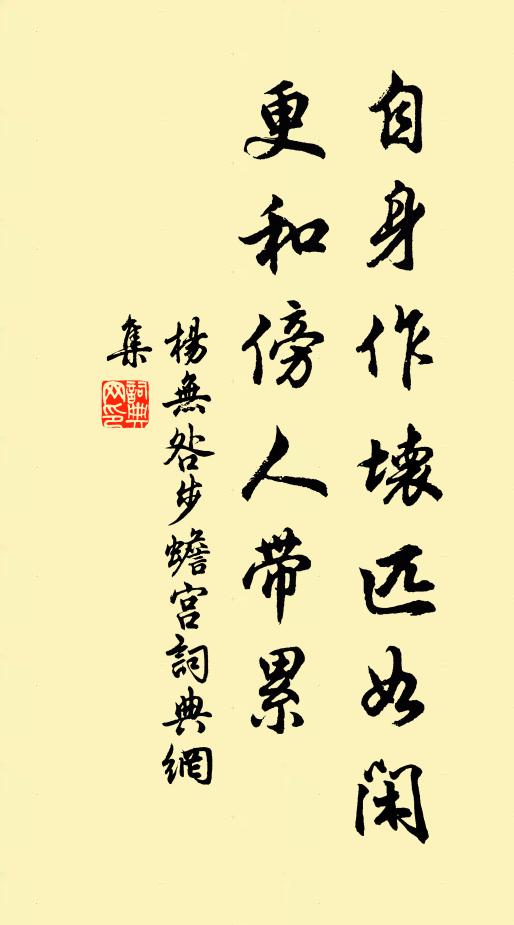 自身作壞匹如閑
更和傍人帶累
楊無咎步蟾宮詞典網
集
詞典網印